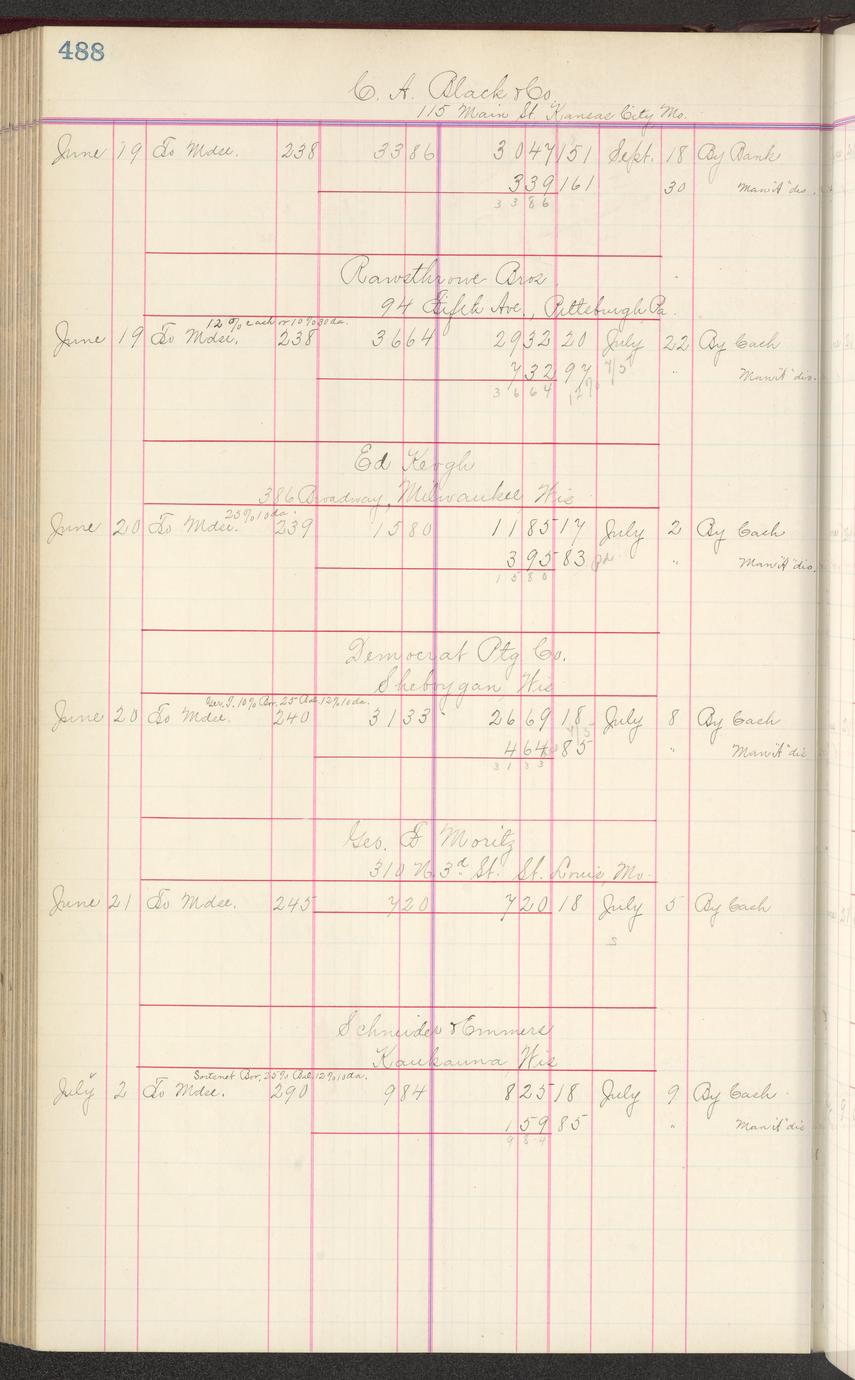 488
C. A. Black & Co.
115 Main St. Kansas City Mo.
June 19 To Mdse. 238 33 86 30 47 151 Sept. 18 By Bank
3 39 161 30 Man'f'
33 86
Rawsthrowe Bros.
94 Fifth Ave., Pittsburgh Pa.
12% cash or 10% 30 da.
June 19 To Mdse. 238 36 64 29 32 20 July 22 By Cash
7 32 97 4/5 "
36 64 12%
Ed Keogh
386 Broadway, Milwaukee Wis
25% 10 da.
June 20 To Mdse. 239 15 80 11 85 17 July 2 By Cash
3 95 83 "
15 80
Democrat Ptg Co.
Sheboygan Wis
10% Bor. 25 Bal. 12% 10 da.
June 20 To Mdse. 240 31 33 26 69 18 July 8 By Cash
4 64 85 "
31 33
Geo. F Moritz
310 N. 3d St. St. Louis, Mo.
June 21 To Mdse. 245 7 20 7 20 18 July 5 By Cash
s
Schneider & Emmers
Kaukauna Wis
Bor. 25% Bal. 12% 10 da.
July 2 To Mdse. 290 9 84 8 25 18 July 9 By Cash
1 59 85 "
9 84